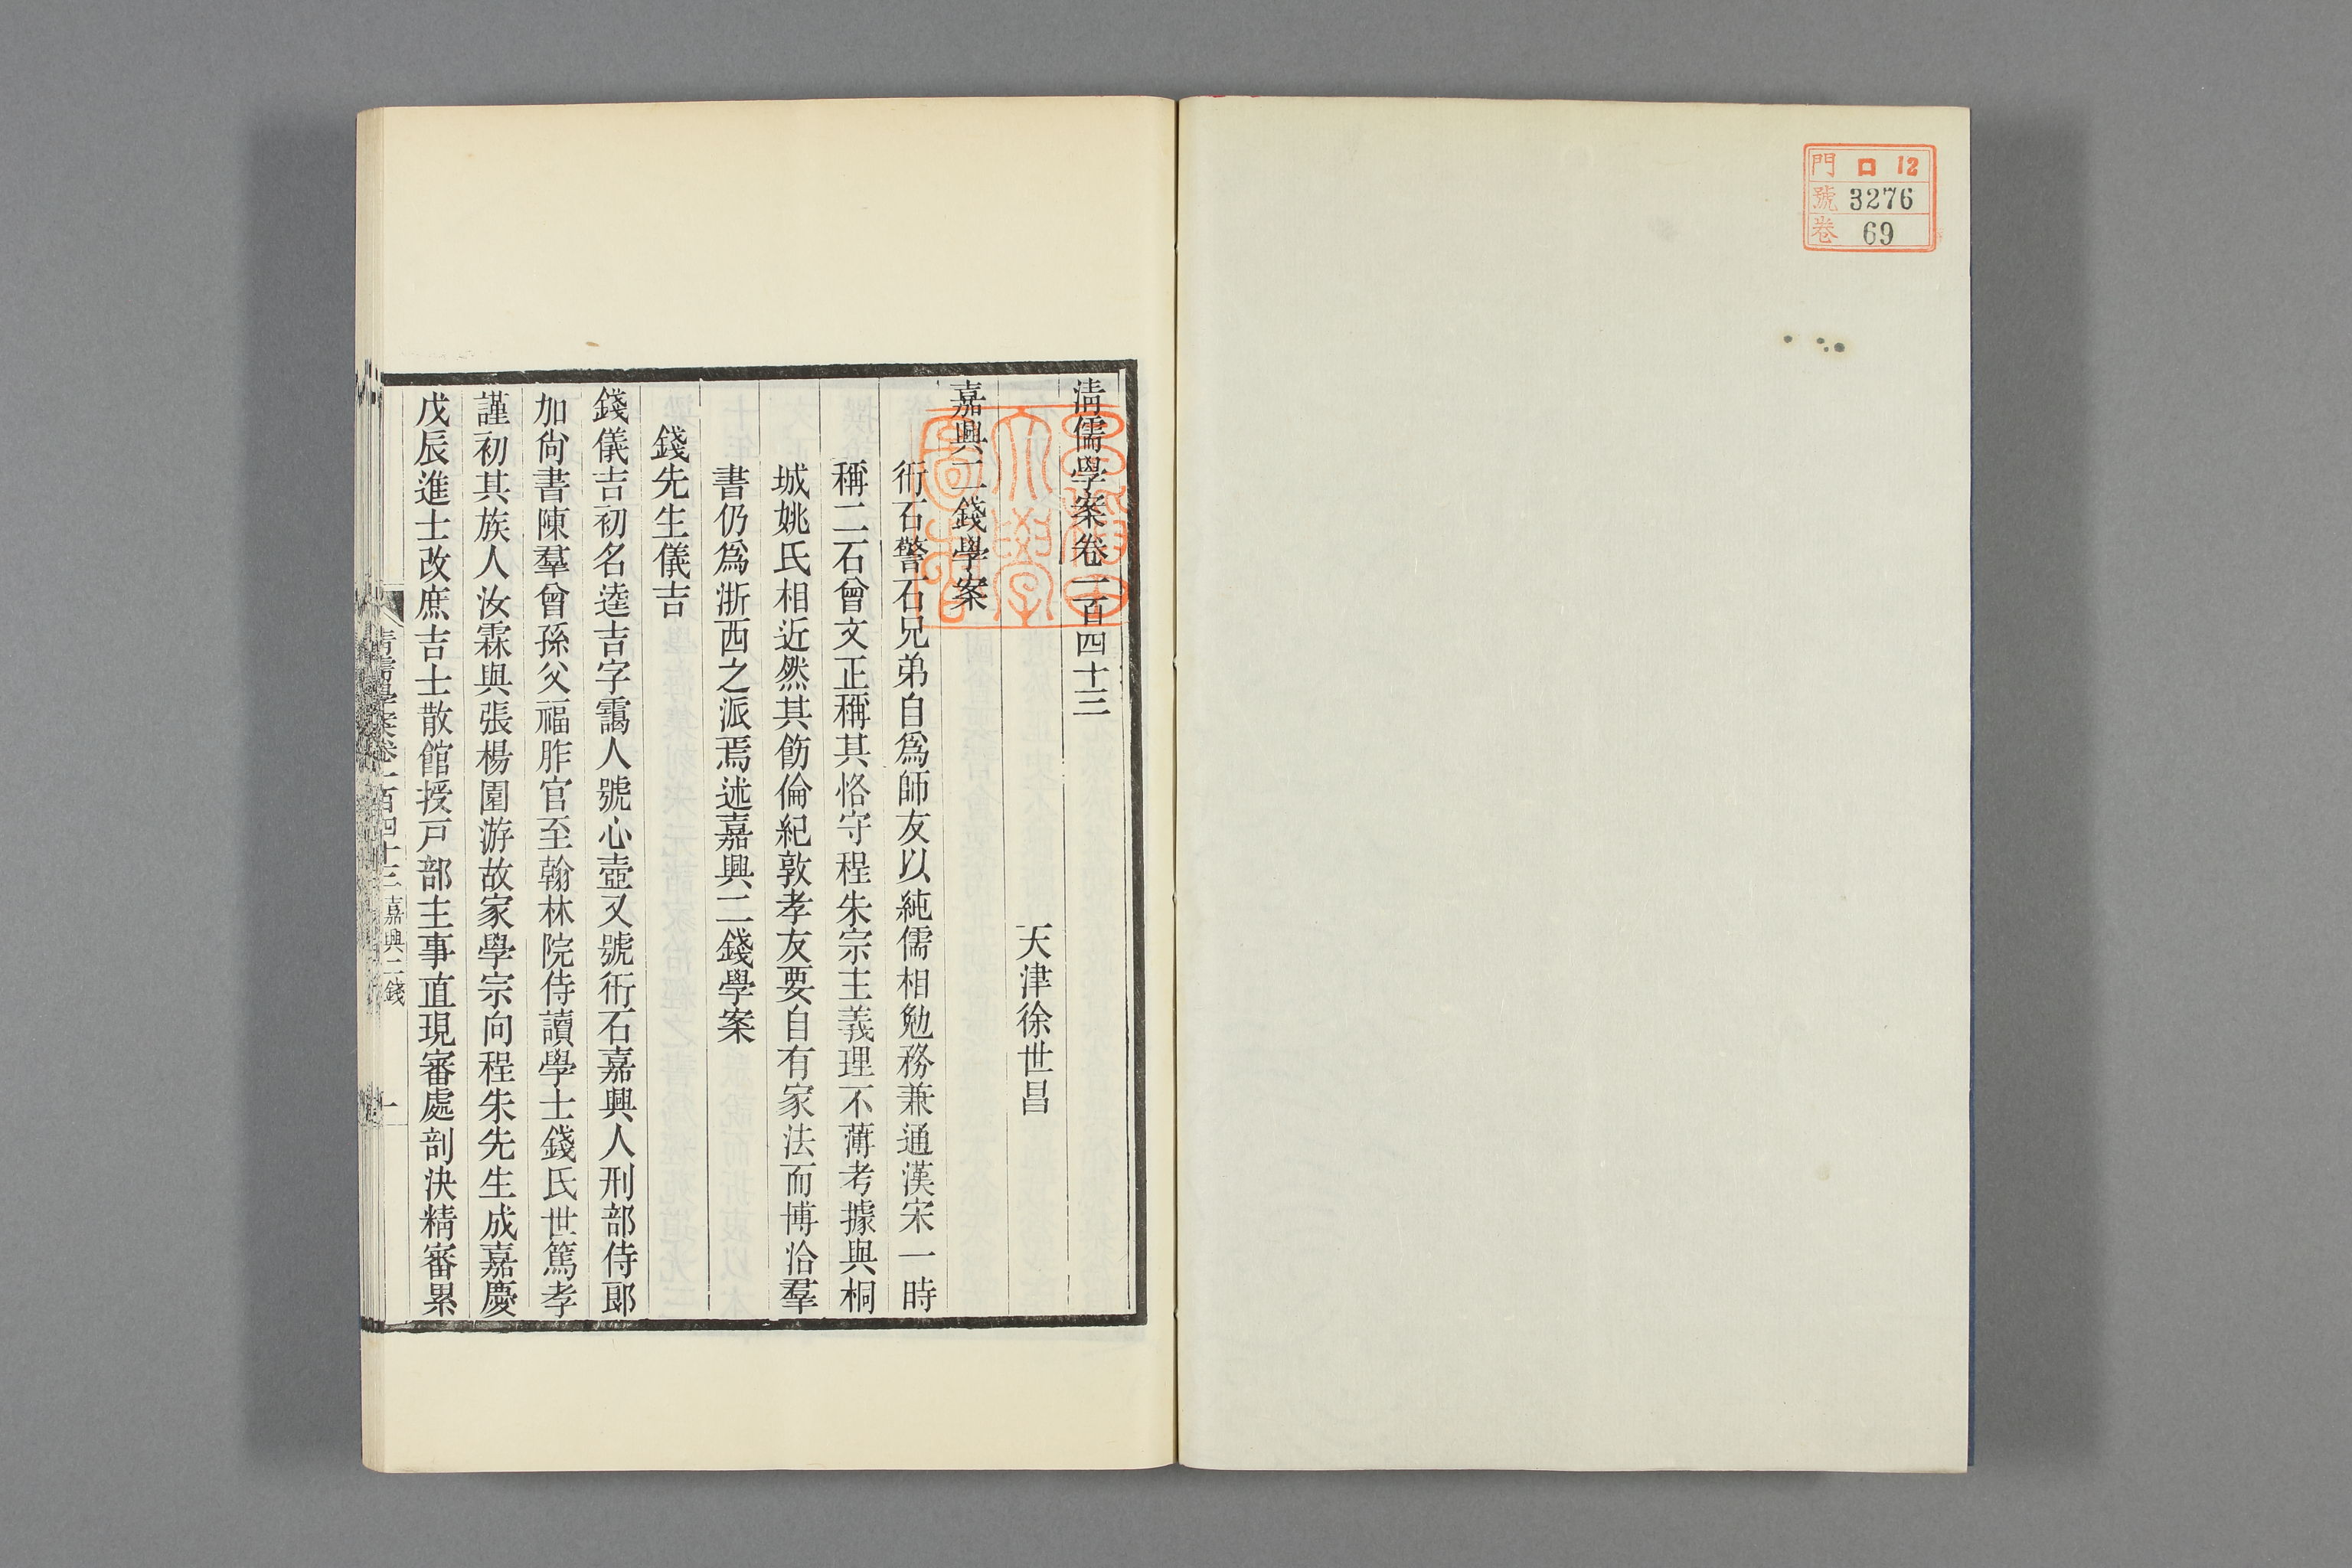 門 ロ 12
號 3276
卷 69
清儒學案卷一百四十三
天津徐世昌
嘉興二錢學案
衎石警石兄弟自爲師友以純儒相勉務兼通漢宋一時
稱二石曾文正稱其恪守程朱宗主義理不薄考據與桐
城姚氏相近然其飭倫紀敦孝友要自有家法而博洽羣
書仍爲浙西之派焉述嘉興二錢學案
錢先生儀吉
錢儀吉初名逵吉字靄人號心壺又號衎石嘉興人刑部侍郎
加尙書陳羣曾孫父福胙官至翰林院侍讀學士錢氏世篤孝
謹初其族人汝霖與張楊園游故家學宗向程朱先生成嘉慶
戊辰進士改庶吉士散館授戸部主事直現審處剖決精審累
清儒學案卷一百四十三 嘉興二錢 一